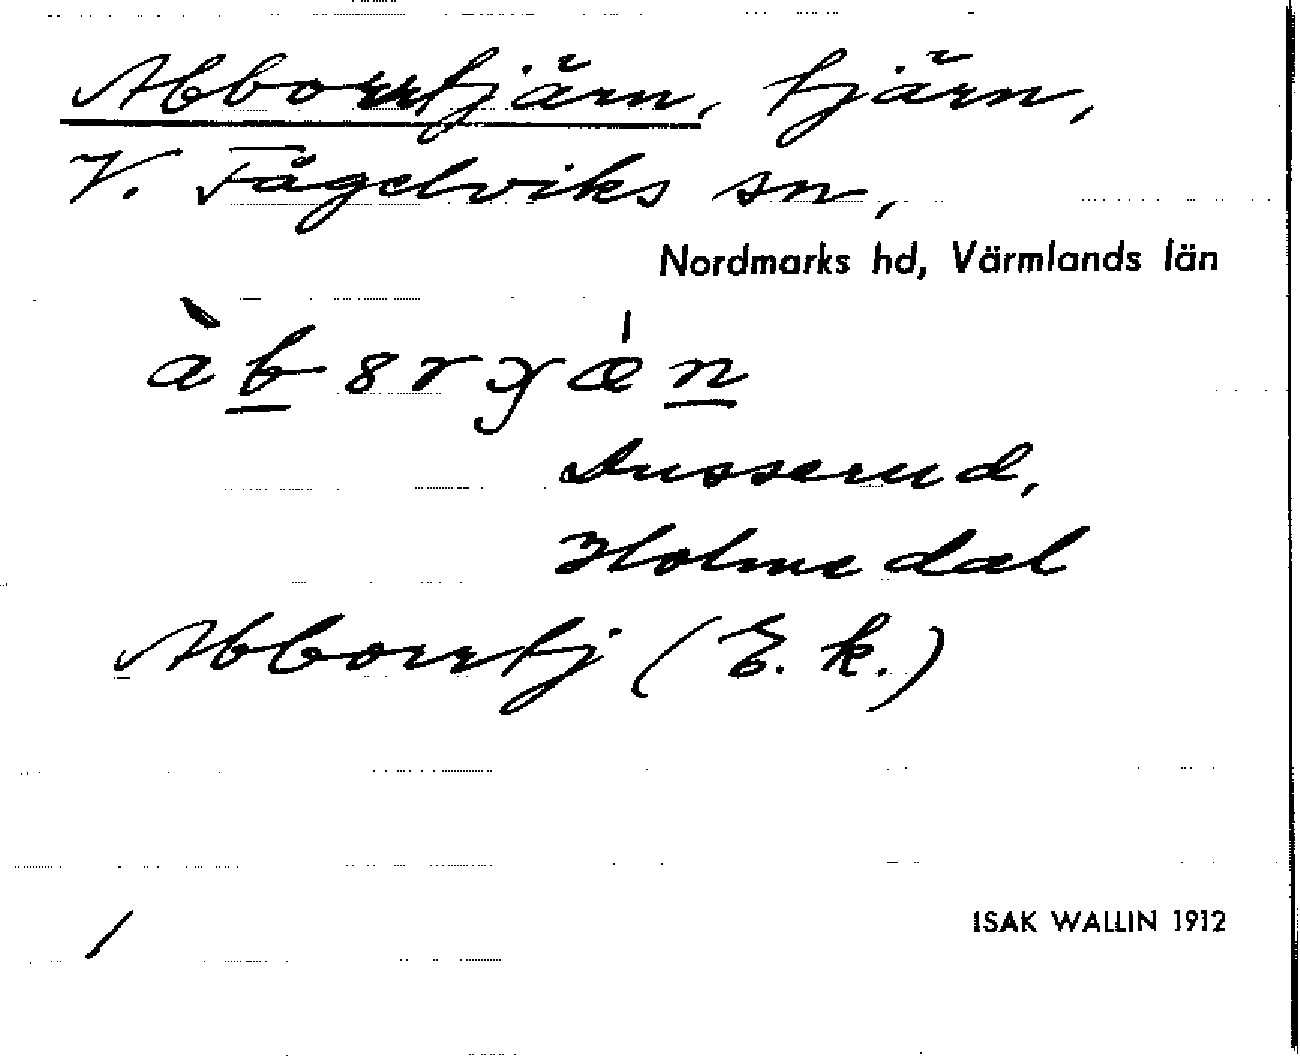 Abborrtjärn, tjärn,
V. Fågelviks sn,
Nordmarks hd, Värmlands län
Dusserud,
Holmedal
Abborrtj (E. k.)
/
ISAK WALLIN 1912